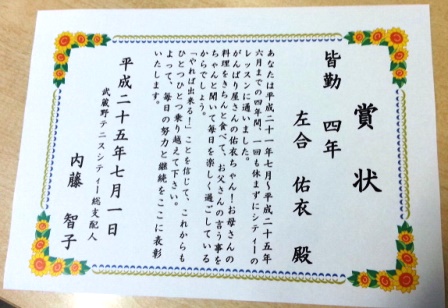 賞状
皆勤 四年
左合 佑衣 殿
あなたは平成二十一年七月〜平成二十五年
六月までの四年間、一回も休まずにシティーの
レッスンに通いました。
がんばり屋さんの佑衣ちゃん！お母さんの
料理をきちんと食べて、お父さんの言う事を
ちゃんと聞いて毎日を楽しく過ごしている
からでしょう。
「やれば出来る！」ことを信じて、これからも
ひとつひとつ乗り越えて下さい。
よって、毎日の努力と継続をここに表彰
いたします。
平成二十五年七月一日
武蔵野テニスシティー総支配人
内藤 智子